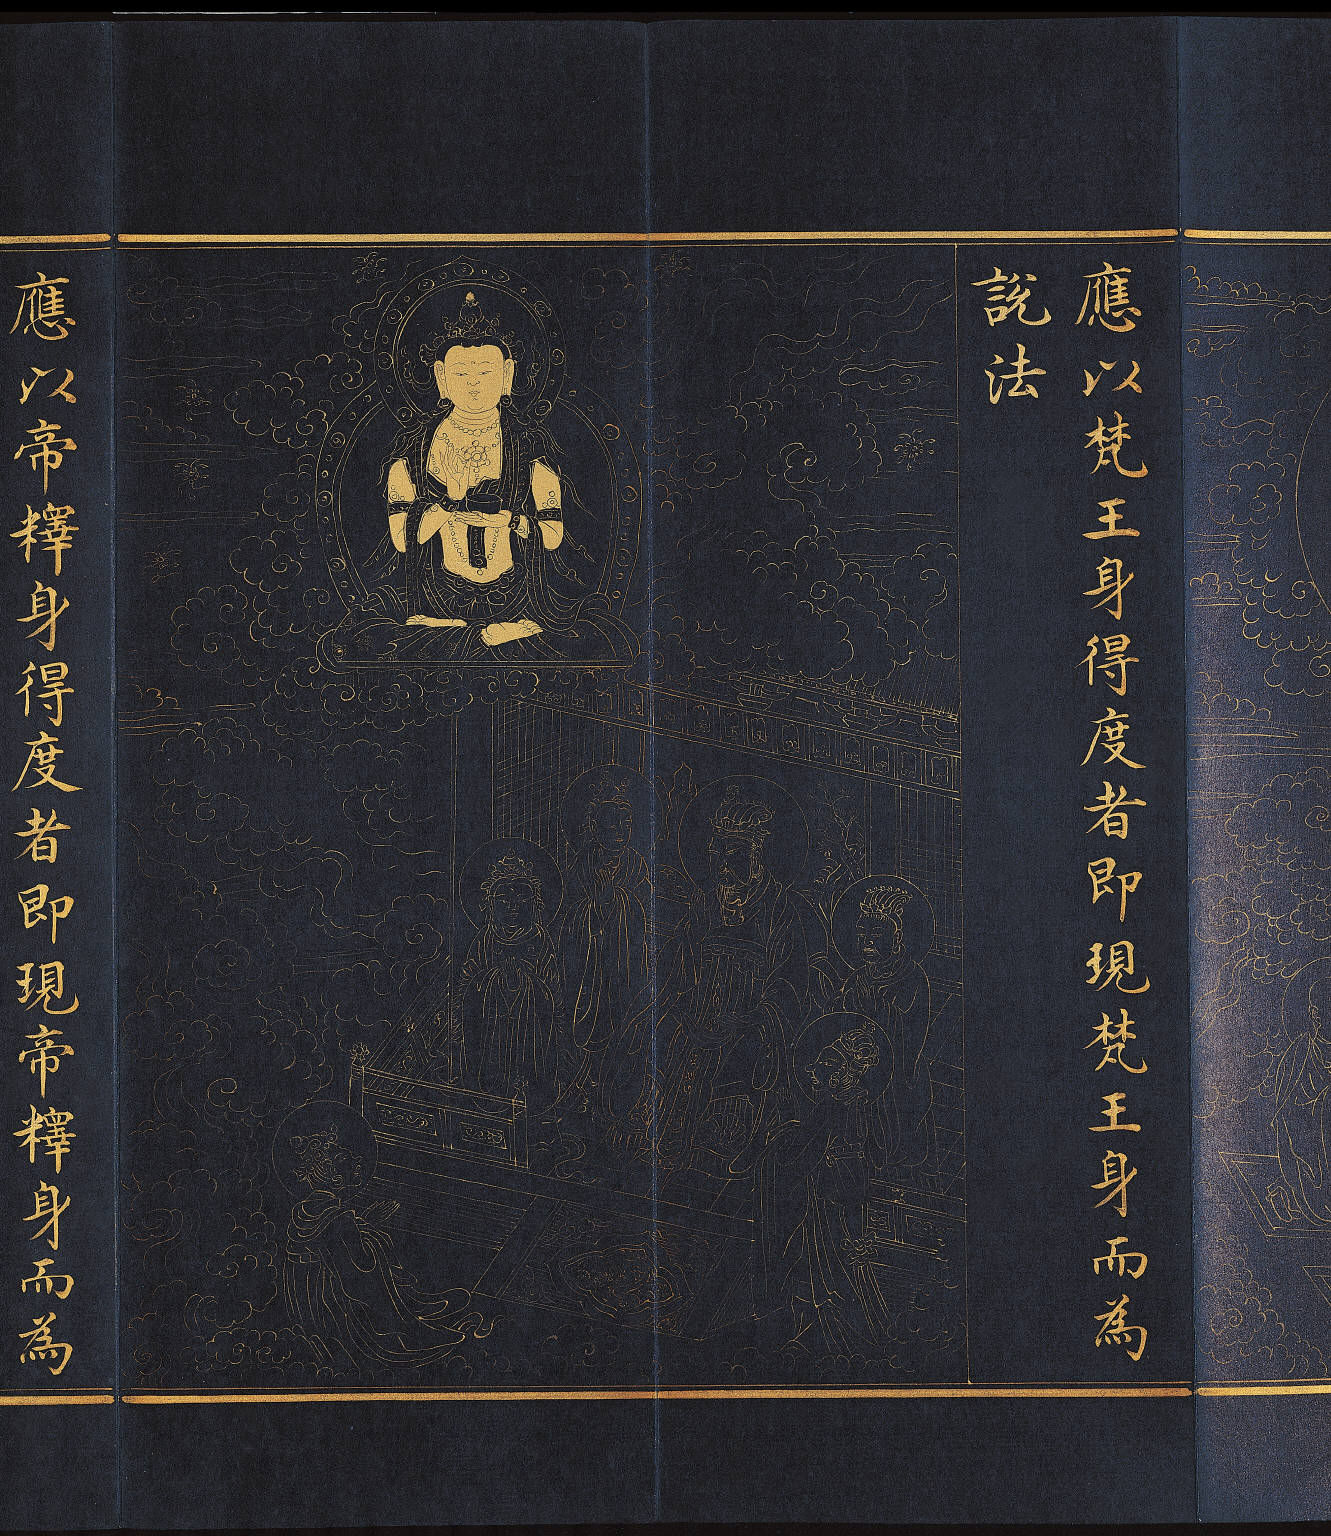 應以梵王身得度者即現梵王身而為
說法
應以帝釋身得度者即現帝釋身而為